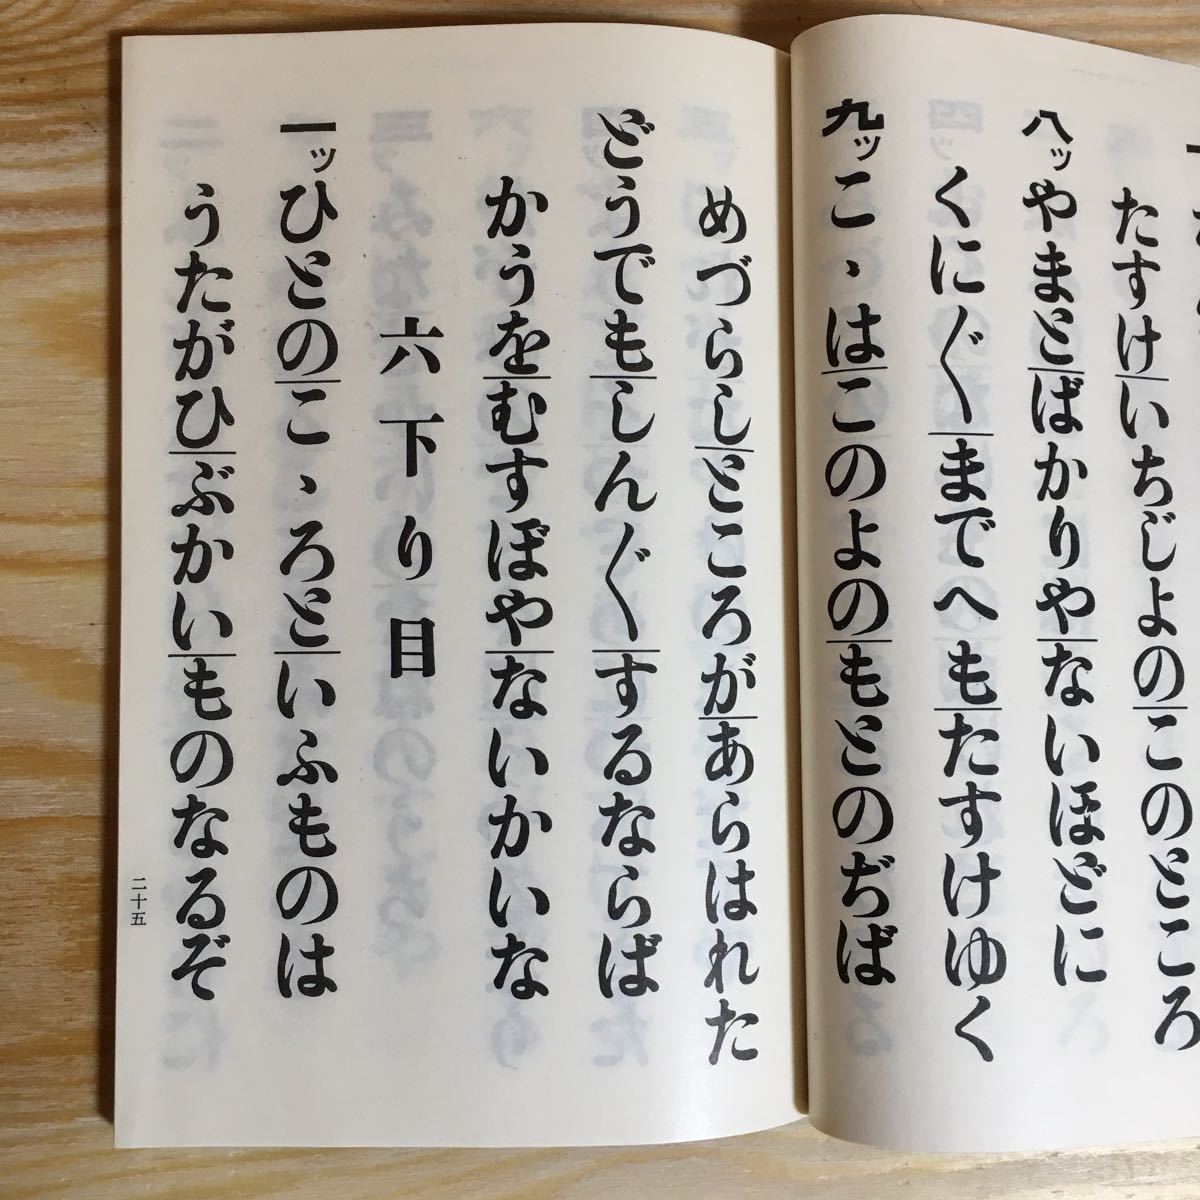 たすけいちじよのこのところ
八ッやまとばかりやないほどに
くに〲までへもたすけゆく
九ッこゝはこのよのもとのぢば
めづらしところがあらはれた
どうでもしん〲するならば
かうをむすぼやないかいな
六下り目
一ッひとのこゝろといふものは
うたがひぶかいものなるぞ
二十五